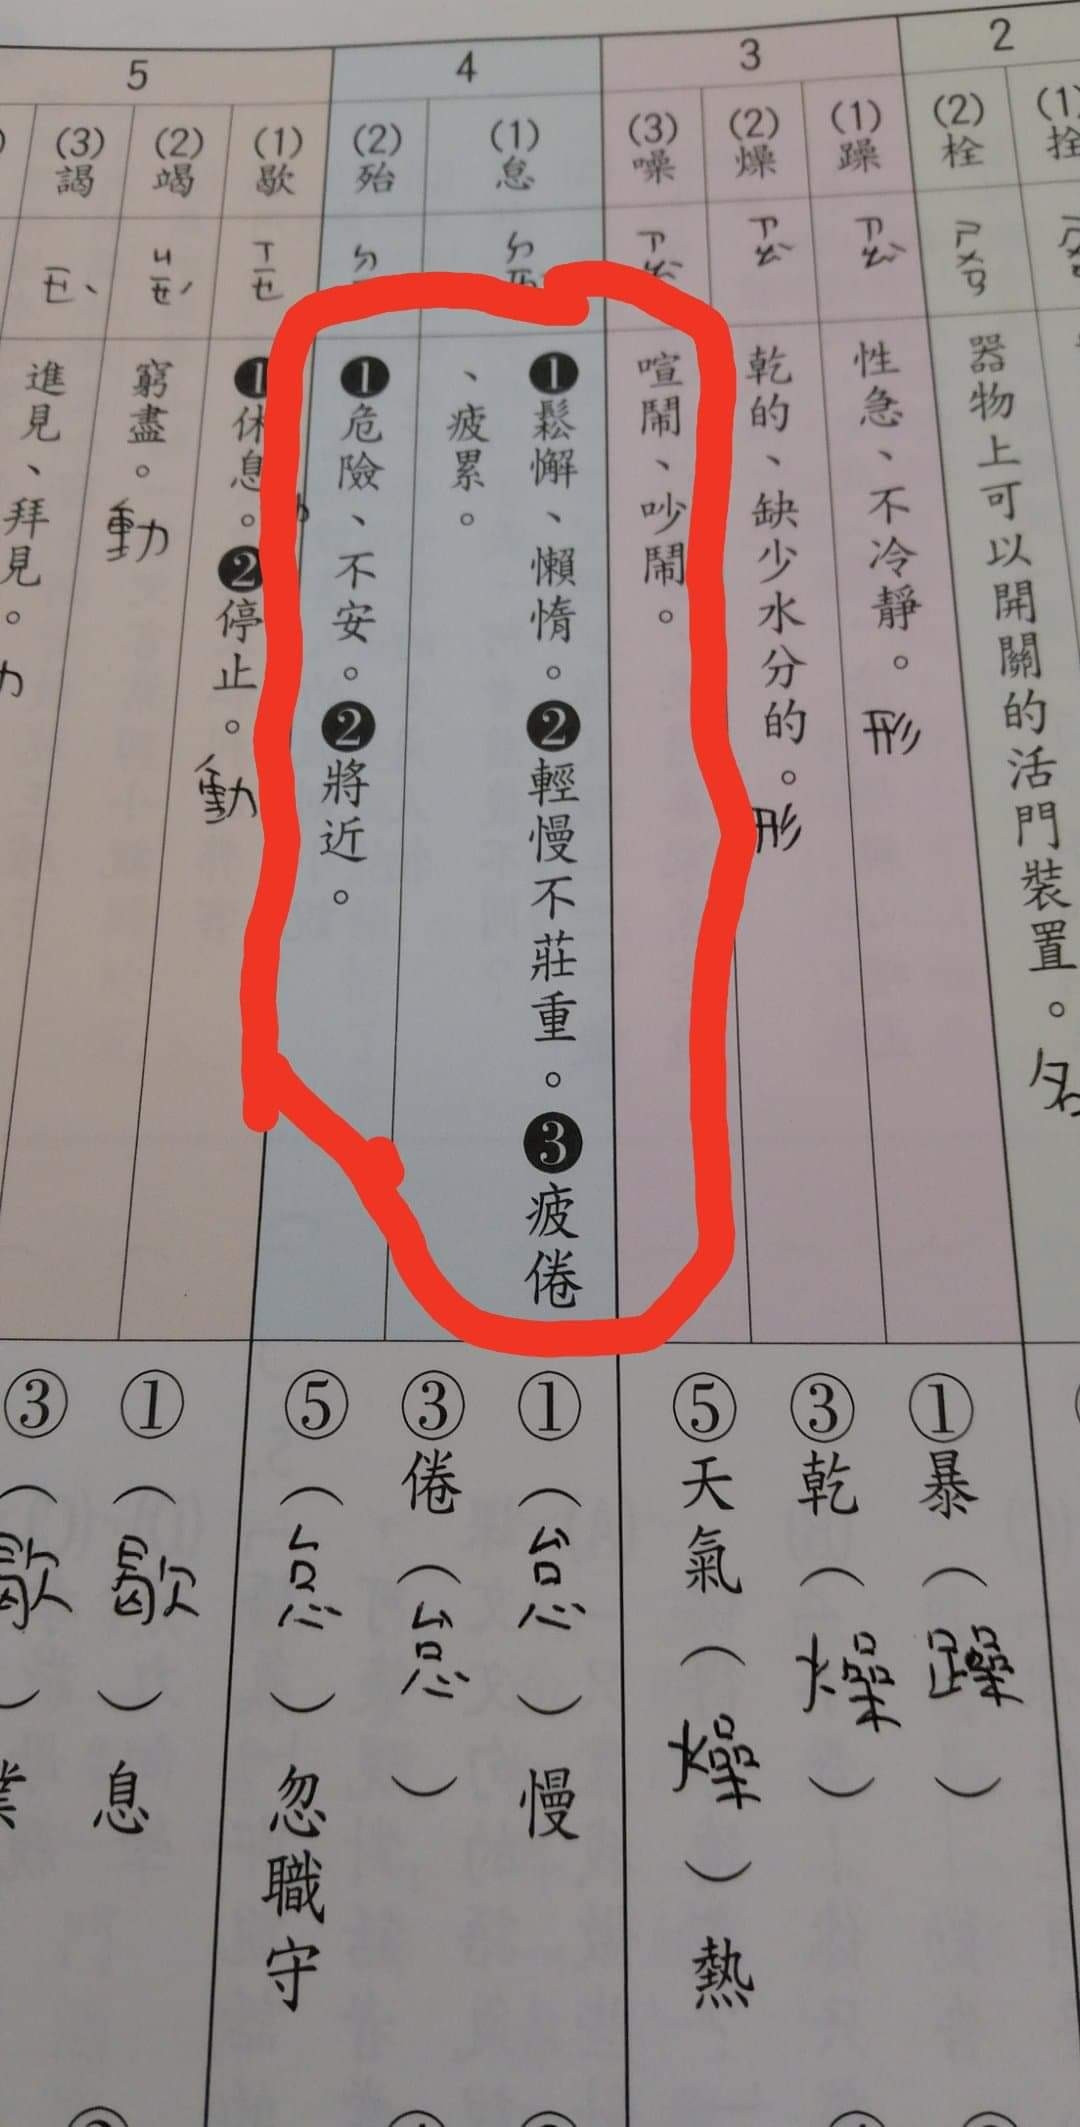 2
(1)
拴
(2)
栓
ㄕㄨㄢ
器物上可以開關的活門裝置。名
3
(1)
躁
ㄗㄠˋ
性急、不冷靜。形
(2)
燥
ㄗㄠˋ
乾的、缺少水分的。形
(3)
噪
ㄗㄠˋ
喧鬧、吵鬧。
4
(1)
怠
ㄉㄞ
❶鬆懈、懶惰。❷輕慢不莊重。❸疲倦
、疲累。
(2)
殆
ㄉ
❶危險、不安。❷將近。
5
(1)
歇
ㄒㄧㄝ
❶休息。❷停止。動
(2)
竭
ㄐㄧㄝˊ
窮盡。動
(3)
謁
ㄧㄝˋ
進見、拜見。
①暴(躁)
③乾(燥)
⑤天氣(燥)熱
①(怠)慢
③倦(怠)
⑤(怠)忽職守
①(歇)息
③(歇)業